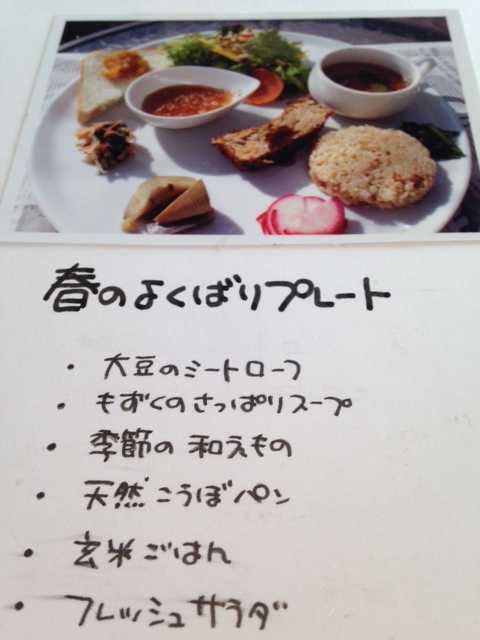 春のよくばりプレート
・大豆のミートローフ
・もずくのさっぱりスープ
・季節の和えもの
・天然こうぼパン
・玄米ごはん
・フレッシュサラダ